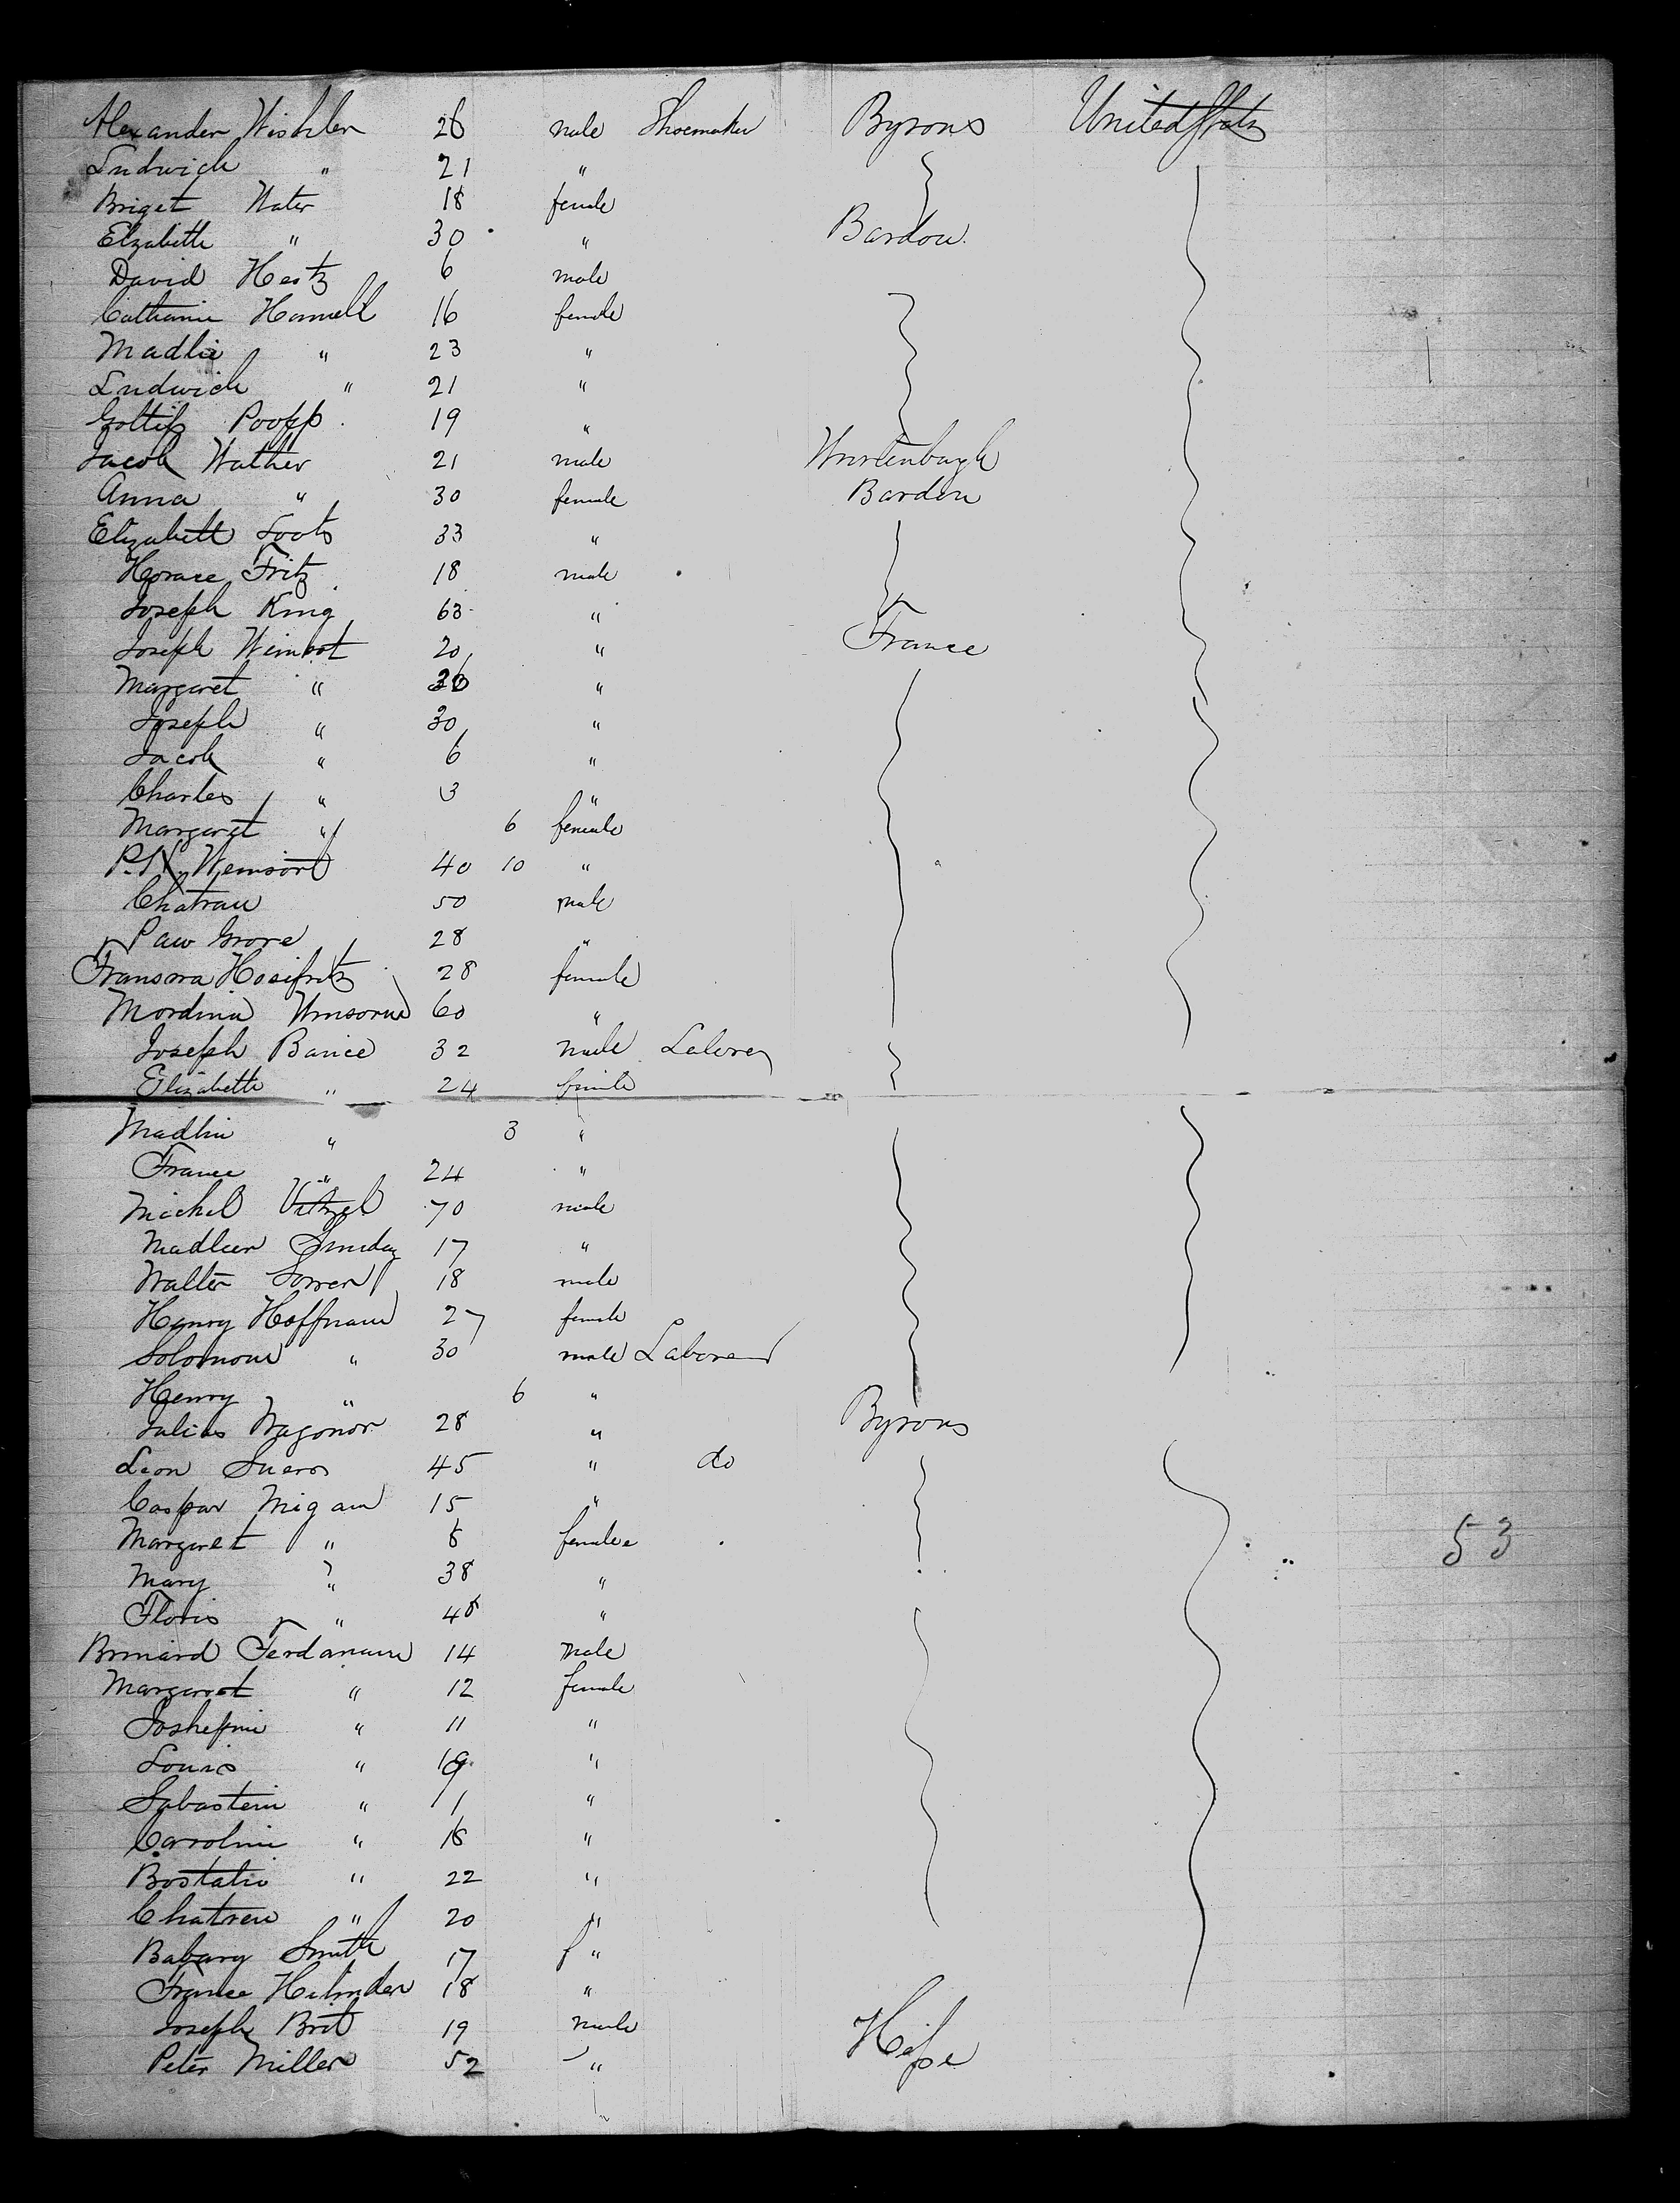 Alexander Wishler 26 male Shoemaker Byrons United States
Ludwich " 21 "
Briget Water 18 female
Elzabette " 30 " Bardou
David Hertz 6 male
Cathanie Hamell 16 female
Madlie " 23 "
Ludwich " 21 "
Gottib Poopp 19 "
Jacob Walther 21 male Wurtenburgh
Anna " 30 female Bardou
Elizabett Loots 33 "
Horace Fritz 18 male
Joseph King 63 "
Joseph Weimbot 20 " France
Margaret " 36 "
Joseph " 30 "
Jacob " 6 "
Charles " 3 "
Margaret " 6 female
P. 40 10 "
Chatrau 50 male
Paw Grove 28 "
28 female
Mordinia 60 "
Joseph Barice 32 male Laborer
Elizabette " 24 female
Madlin " 3 "
France " 24 "
Michel Vitzel 70 male
Madleer Smiday 17 "
Walter Sorren 18 male
Henry Hoffman 27 female
Solomon " 30 male Laborer
Henry " 6 "
Julius Wagonor 28 " Byrons
Leon Sueros 45 " do
Caspar Migan 15 "
Margaret " 8 female
Mary " 38 "
53
Floris " 48 "
Bernard Ferdanann 14 male
Margaret " 12 female
Joshefini " 11 "
Louis " 19 "
Sabastein " 11 "
Carrolini " 16 "
Bostatio " 22 "
Chatren " 20 "
Babary Smith 17 f "
France Hilinder 18 "
Joseph Brit 19 male
Peter Miller 52 " Hesse